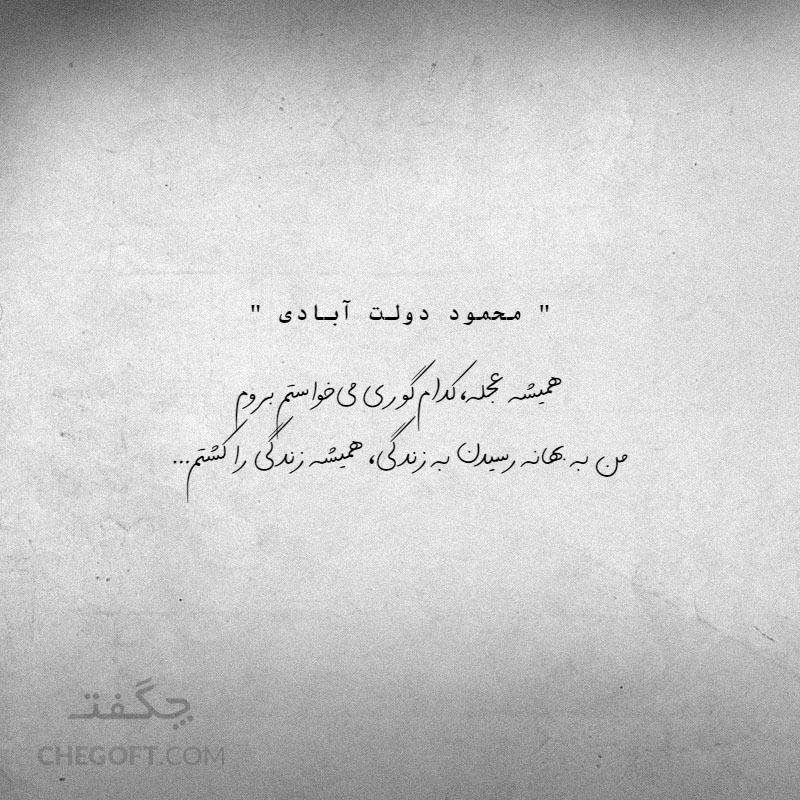 " محمود دولت آبادی "
همیشه عجله، کدام گوری می‌خواستم بروم
من به بهانه رسیدن به زندگی، همیشه زندگی را کشتم...
چگفت
CHEGOFT.COM